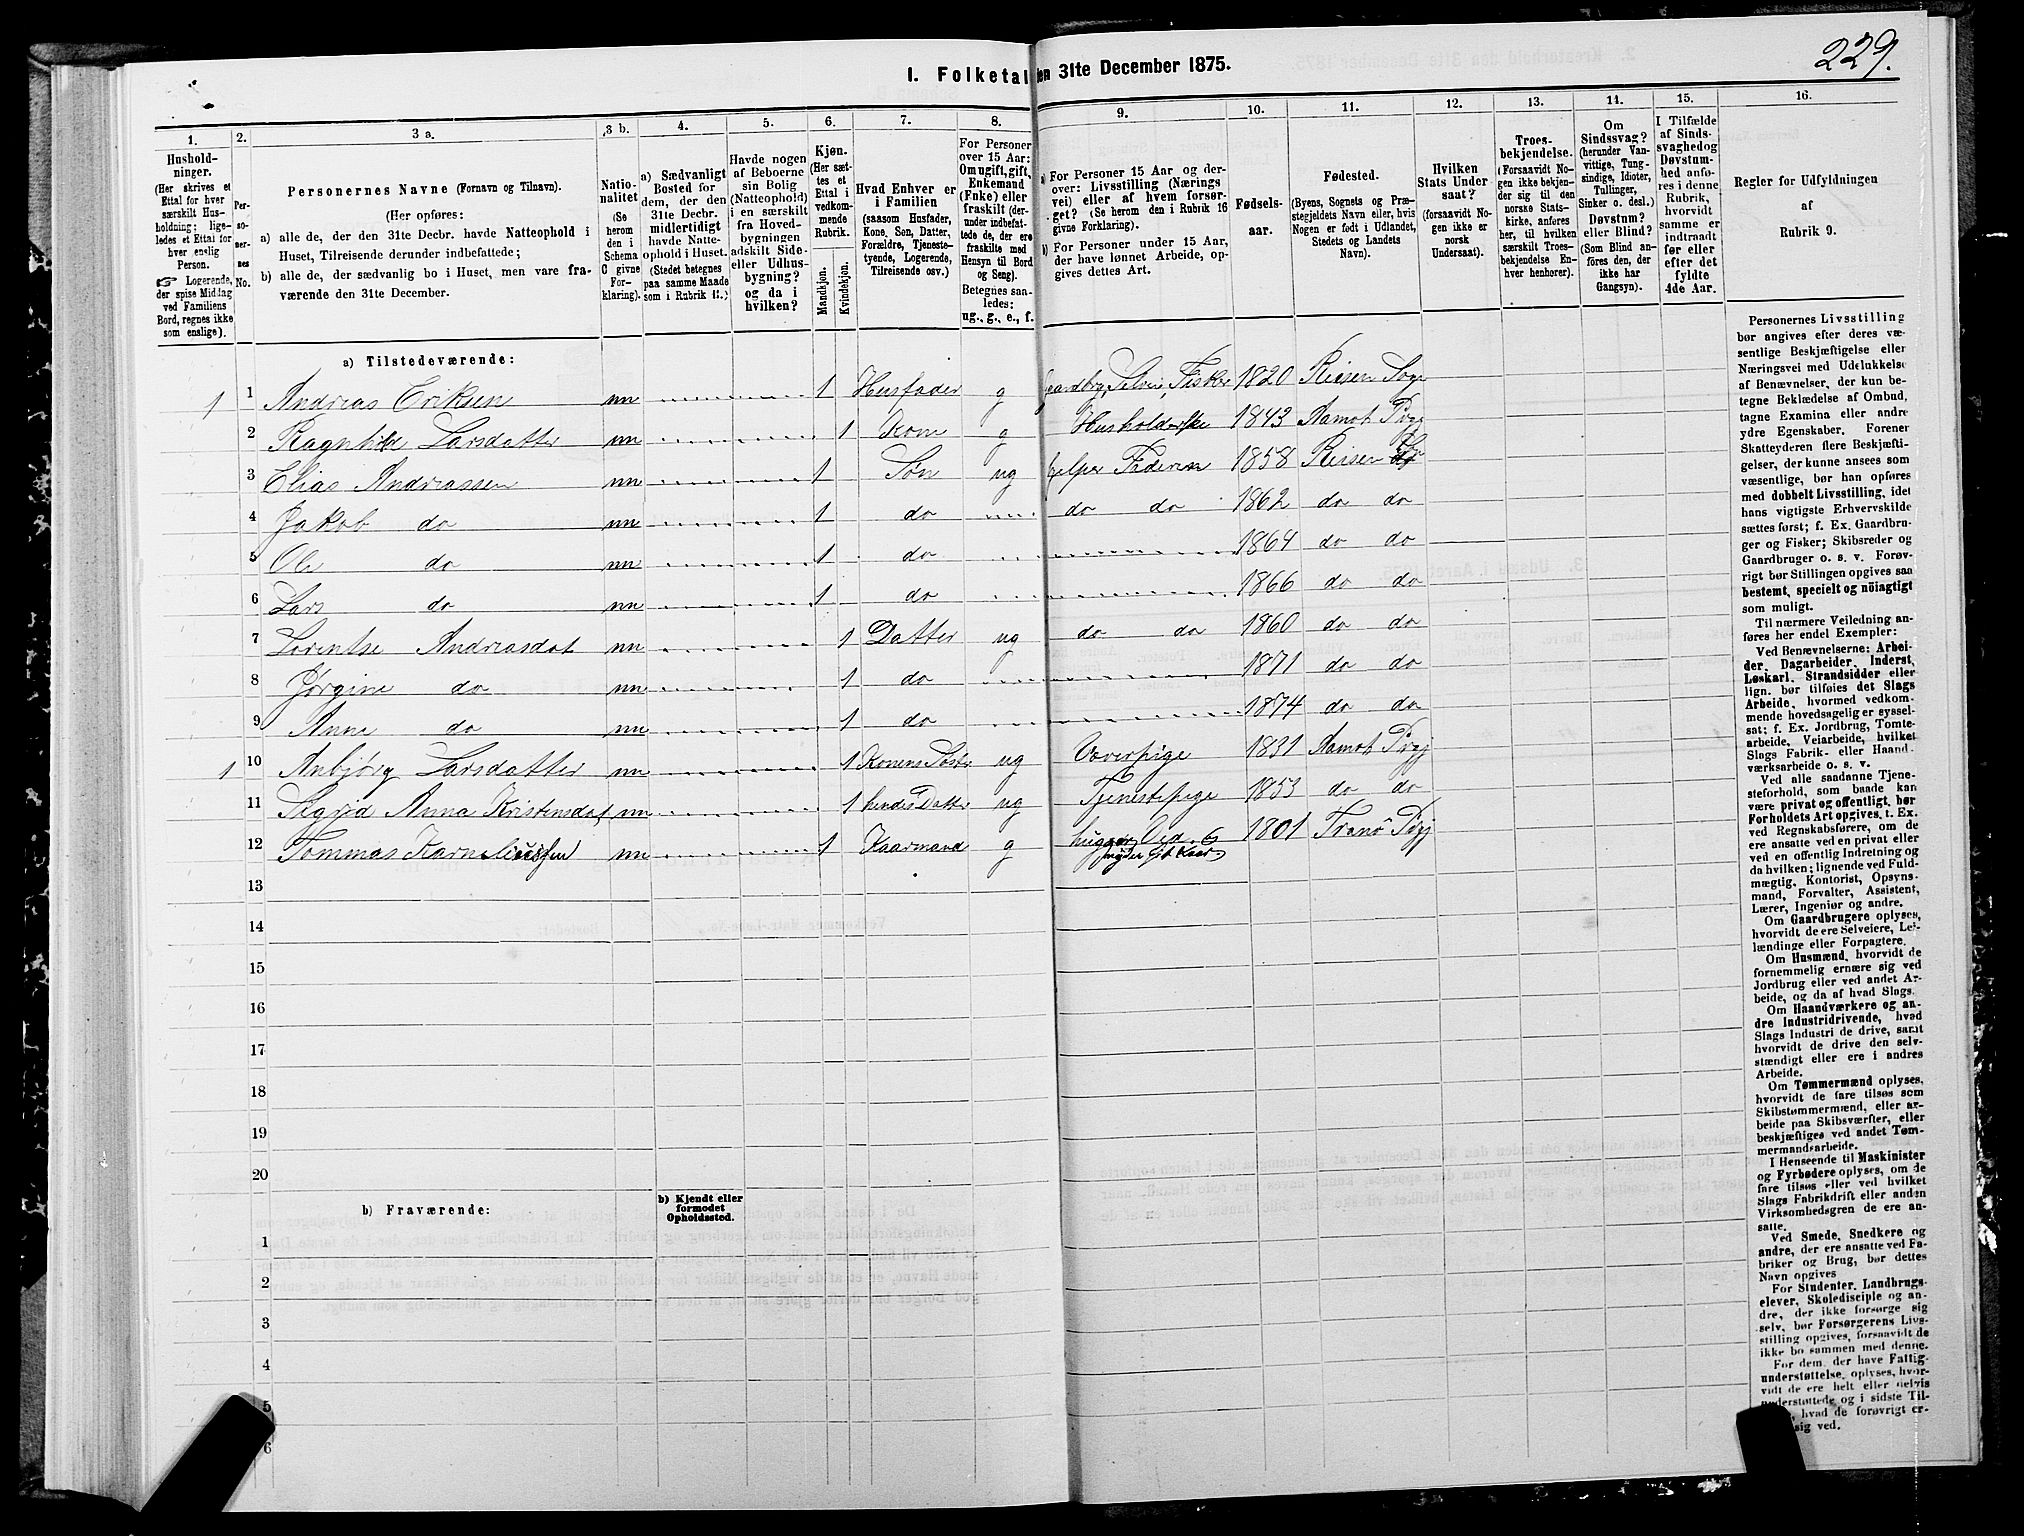 229.
I. Folketal den 31te December 1875.
1. 2. 3 a. 3 b. 4. 5. 6. 7. 8. 9. 10. 11. 12. 13. 14. 15. 16.
Hushold-
ninger.
(Her skrives et
Ettal for hver
særskilt Hus-
holdning; lige-
ledes et Ettal for
hver enslig
Person.
☞ Logerende,
der spise Middag
ved Familiens
Bord, regnes ikke
som enslige).
Per-
so-
ner-
nes
No.
Personernes Navne (Fornavn og Tilnavn).
(Her opføres:
a) alle de, der den 31te Decbr. havde Natteophold i
Huset, Tilreisende derunder indbefattede;
b) alle de, der sædvanlig bo i Huset, men vare fra-
værende den 31te December.
Natio-
nalitet
(Se
herom
den i
Schema
C givne
For-
klaring).
a) Sædvanligt
Bosted for
dem, der den
31te Decbr.
midlertidigt
havde Natte-
ophold i Huset.
(Stedet betegnes
paa samme Maade
som i Rubrik 11.)
Havde nogen
af Beboerne
sin Bolig
(Natteophold)
i en særskilt
fra Hoved-
bygningen
adskilt Side-
eller Udhus-
bygning?
og da i
hvilken?
Kjøn.
(Her sæt-
tes et
Ettal i
vedkom-
mende
Rubrik.
Mandkjøn.
Kvindekjøn.
Hvad Enhver er
i Familien
(saasom Husfader,
Kone, Søn, Datter,
Forældre, Tjeneste-
tyende, Logerende,
Tilreisende osv.)
For Personer
over 15 Aar:
Om ugift, gift,
Enkemand
(Enke) eller
fraskilt (der-
under indbefat-
tede de, der ere
fraskilte med
Hensyn til Bord
og Seng).
Betegnes saa-
ledes:
ug., g., e., f.
a) For Personer 15 Aar og der-
over: Livsstilling (Nærings
vei) eller af hvem forsør-
get? (Se herom den i Rubrik 16
givne Forklaring).
b) For Personer under 15 Aar,
der have lønnet Arbeide, op-
gives dettes Art.
Fødsels-
aar.
Fødested.
(Byens, Sognets og Præ-
stegjeldets Navn eller, hvis
Nogen er født i Udlandet,
Stedets og Landets
Navn).
Hvilken
Stats Under
saat?
(forsaavidt No-
gen ikke er
norsk
Undersaat).
Troes-
bekjendelse.
(Forsaavidt No-
gen ikke bekjen-
der sig til den
norske Stats-
kirke, anføres
her, til hvilken
særskilt Troes-
bekjendelse En-
hver henhorer).
Om
Sindssvag?
(herunder Van-
vittige, Tung-
sindige, Idioter,
Tullinger,
Sinker o. desl.)
Døvstum?
eller Blind?
(Som Blind an-
føres den, der
ikke har
Gangsyn).
I Tilfælde
af Sinds-
svaghed og
Døvstum-
hed anfø-
res i denne
Rubrik,
hvorvidt
samme er
indtraadt
før eller
efter det
fyldte
4de Aar.
Regler for Udfyldningen
af
Rubrik 9.
a) Tilstedeværende:
1 1 Andreas Eriksen nn 1 Husfader g Gaardbrg, Selvei, Fisker 1820 Reisen Sogn
2 Ragnhild Larsdatter nn 1 Kone g Husholderske 1843 Aamot Prgj
3 Elias Andreassen nn 1 Søn ug hjelper Faderen 1858 Reisen
4 Jakob do nn 1 do do do 1862 do do
5 Ole do nn 1 do 1864 do do
6 Lars do nn 1 do 1866 do do
7 Lorentse Andreasdat nn 1 Datter ug do do 1860 do do
8 Jørgine do nn 1 do 1871 do do
9 Anne do nn 1 do 1874 do do
1 10 Anbjørg Larsdatter nn 1 Konens Søster ug Væverpige 1831 Aamot Prgj
11 Sigrid Anna Kristensdat nn 1 hendes Datter ug Tjenestepige 1853 do do
12 Tommas Karneliussen nn 1 Kaarmand g hugger Ved og
nyder sit Kaar 1801 Tranø Prgj
13
14
15
16
17
18
19
20
b) Fraværende:
b) Kjendt eller
formodet
Opholdssted.
1
2
3
4
5
6
Personernes Livsstilling
bør angives efter deres væ-
sentlige Beskjæftigelse eller
Næringsvei med Udelukkelse
af Benævnelser, der kun be-
tegne Beklædelse af Ombud,
tagne Examina eller andre
ydre Egenskaber. Forener
Skatteyderen flere Beskjæfti-
gelser, der kunne ansees som
væsentlige, bør han opføres
med dobbelt Livsstilling, idet
hans vigtigste Erhvervskilde
sættes først; f. Ex. Gaardbru-
ger og Fisker; Skibsreder og
Gaardbruger o. s. v. Forøv-
rigt bør Stillingen opgives saa
bestemt, specielt og nöiagtigt
som muligt.
Til nærmere Veiledning an-
føres her endel Exempler:
Ved Benævnelserne: Arbei-
der, Dagarbeider, Inderst,
Løskarl, Strandsidder eller
lign. bør tilføies det Slags
Arbeide, hvormed vedkom-
mende hovedsagelig er syssel-
sat; f. Ex. Jordbrug, Tomte-
arbeide, Veiarbeide, hvilket
Slags Fabrik- eller Haand-
værksarbeide o. s. v.
Ved alle saadanne Tjene-
steforhold, som baade kan
være privat og offentligt, bør
Forholdets Art opgives, t. Ex.
ved Regnskabsførere, om de
ere ansatte ved en privat eller
ved en offentlig Indretning og
da hvilken; lignende ved Fuld-
mægtig, Kontorist, Opsyns-
mand, Forvalter, Assistent,
Lærer, Ingeniør og andre.
Om Gaardbrugere oplyses,
hvorvidt de ere Selveiere, Lei-
lændinge eller Forpagtere.
Om Husmænd, hvorvidt de
fornemmelig ernære sig ved
Jordbrug eller ved andet Ar-
beide, og da af hvad Slags.
Om Haandværkere og an-
dre Industridrivende, hvad
Slags Industri de drive, samt
hvorvidt de drive den selv-
stændigt eller ere i andres
Arbeide.
Om Tømmermænd oplyses,
hvorvidt de fare tilsøs som
Skibstømmermænd, eller ar-
beide paa Skibsværfter, eller
beskjæftiges ved andet Tøm-
mermandsarbeide.
I Henseende til Maskinister
og Fyrbødere oplyses, om de
fare tilsøs eller ved hvilket
Slags Fabrikdrift eller anden
Virksomhedsgren de ere an-
satte.
Ved Smede, Snedkere og
andre, der ere ansatte ved Fa-
briker og Brug, bør dettes
Navn opgives
For Studenter, Landbrugs-
elever, Skoledisciple og an-
dre, der ikke forsørge sig
selv, bør Forsørgerens Livs-
stilling opgives, forsaavidt de
ikke bo sammen med denne.
For dem, der have Fattig-
understøttelse, oplyses, hvor-
vidt de ere helt eller delvis
understøttede og i sidste Til-
hvad de forøvrigt er-
sig ved.